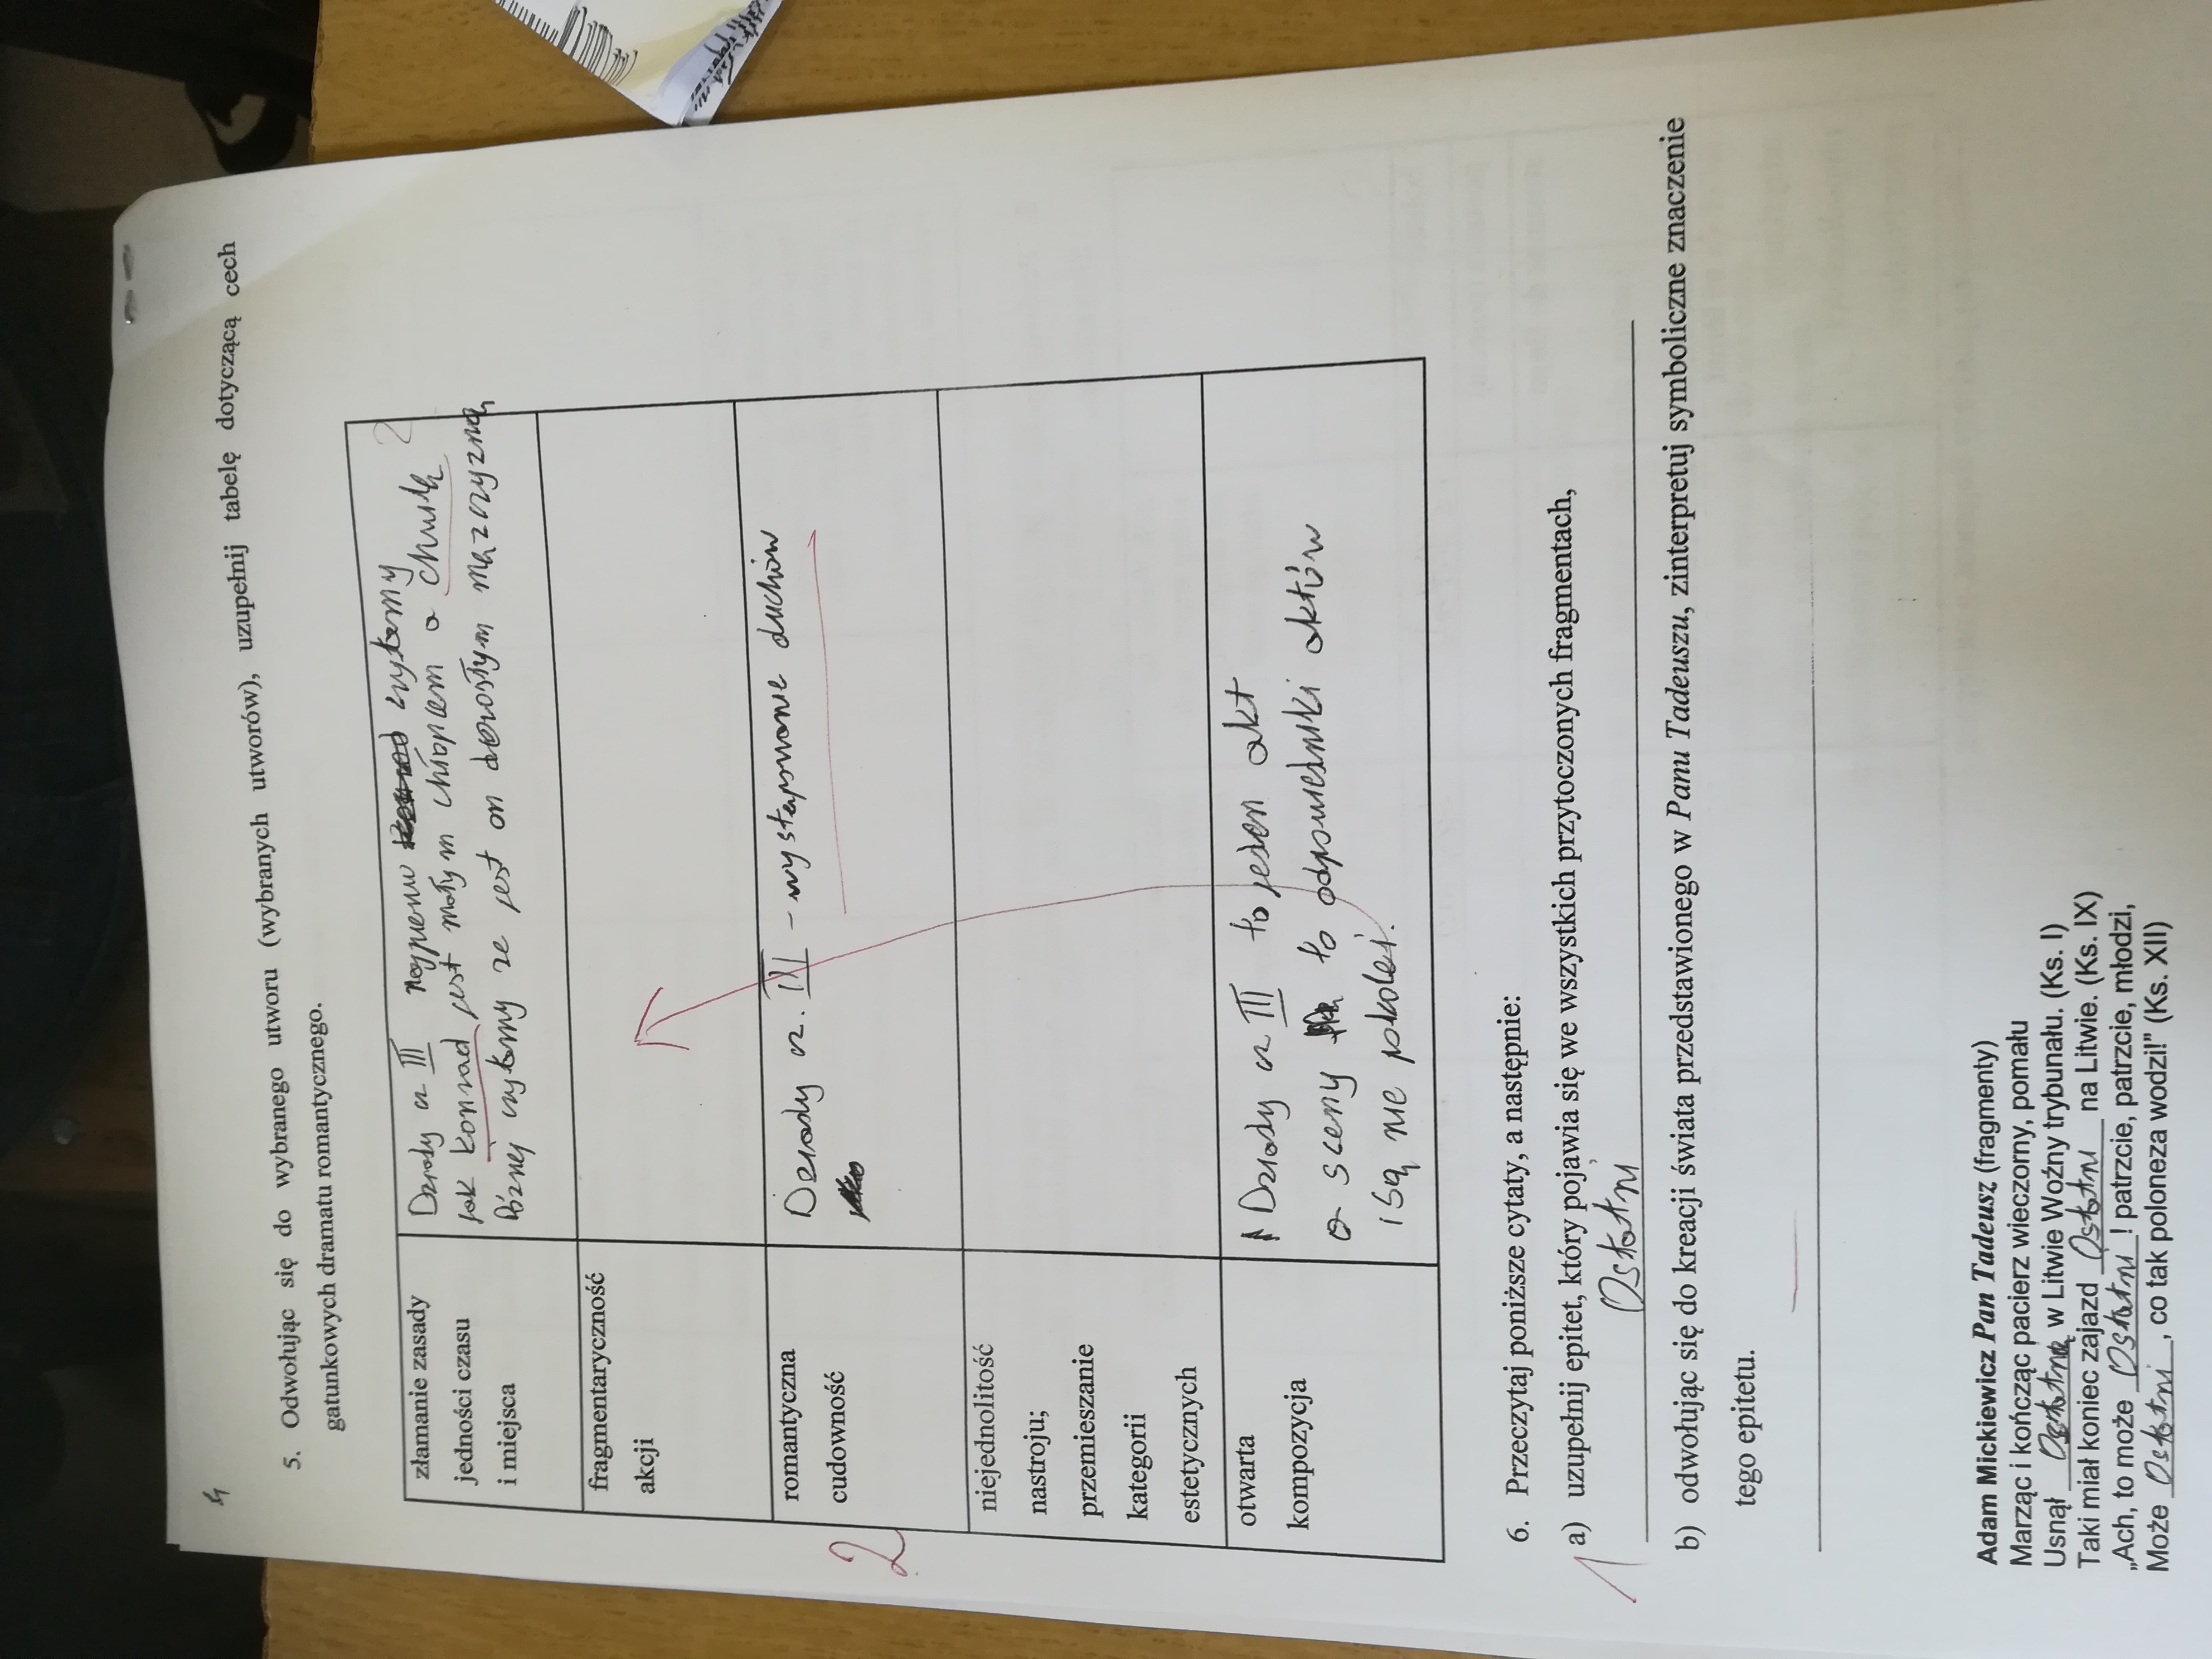 4
5. Odwołując się do wybranego utworu (wybranych utworów), uzupełnij tabelę dotyczącą cech
gatunkowych dramatu romantycznego.
złamanie zasady
jedności czasu
i miejsca
Dziady cz III Najpierw czytamy
jak Konrad jest małym chłopcem a chwilę
Póżnej czytamy ze jest on dorosłym mężczyzną
2
fragmentaryczność
akcji
romantyczna
cudowność
Dziady cz. III - występowanie duchów
2
niejednolitość
nastroju;
przemieszanie
kategorii
estetycznych
otwarta
kompozycja
Dziady cz III to jeden akt
a sceny to odpowiedniki aktów
i są nie pokolei.
6. Przeczytaj poniższe cytaty, a następnie:
a) uzupełnij epitet, który pojawia się we wszystkich przytoczonych fragmentach,
Ostatni
1
b) odwołując się do kreacji świata przedstawionego w Panu Tadeuszu, zinterpretuj symboliczne znaczenie
tego epitetu.
Adam Mickiewicz Pan Tadeusz (fragmenty)
Marząc i kończąc pacierz wieczorny, pomału
Usnął Ostatni w Litwie Woźny trybunału. (Ks. I)
Taki miał koniec zajazd Ostatni na Litwie. (Ks. IX)
„Ach, to może Ostatni ! patrzcie, patrzcie, młodzi,
Może Ostatni , co tak poloneza wodzi!” (Ks. XII)